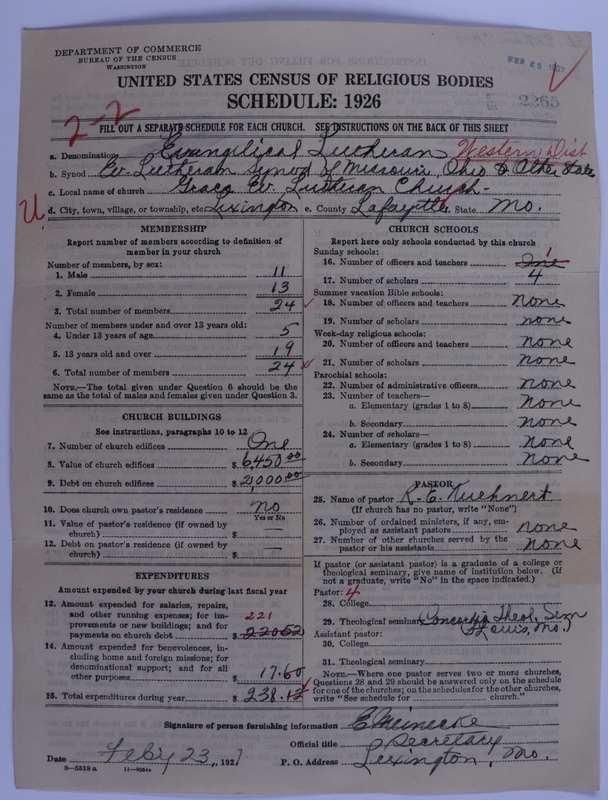 DEPARTMENT OF COMMERCE
BUREAU OF THE CENSUS
WASHINGTON
FEB 25 1927
UNITED STATES CENSUS OF RELIGIOUS BODIES
SCHEDULE: 1926
2265
2-2
FILL OUT A SEPARATE SCHEDULE FOR EACH CHURCH. SEE INSTRUCTIONS ON THE BACK OF THIS SHEET
a. Denomination Evangelical Lutheran Western Dist
b. Synod Ev. Lutheran Synod of Missouri, Ohio & Other State
c. Local name of church Grace Ev. Lutheran Church
U d. City, town, village, or township, etc. Lexington e. County Lafayette State Mo.
MEMBERSHIP
Report number of members according to definition of
member in your church
Number of members, by sex:
1. Male 11
2. Female 13
3. Total number of members 24
Number of members under and over 13 years old:
4. Under 13 years of age 5
5. 13 years old and over 19
6. Total number of members 24
NOTE.—The total given under Question 6 should be the
same as the total of males and females given under Question 3.
CHURCH BUILDINGS
See instructions, paragraphs 10 to 12
7. Number of church edifices One
8. Value of church edifices $ 6,450.00
9. Debt on church edifices $ 2,000.00
10. Does church own pastor's residence? No
Yes or No
11. Value of pastor's residence (if owned by
church) $ —
12. Debt on pastor's residence (if owned by
church) $ —
EXPENDITURES
Amount expended by your church during last fiscal year
13. Amount expended for salaries, repairs,
and other running expenses; for im- 221
provements or new buildings; and for
payments on church debt $ 220.52
14. Amount expended for benevolences, in-
cluding home and foreign missions; for
denominational support; and for all
other purposes $ 17.60
15. Total expenditures during year $ 238.12
CHURCH SCHOOLS
Report here only schools conducted by this church
Sunday schools: 1
16. Number of officers and teachers One
17. Number of scholars 4
Summer vacation Bible schools:
18. Number of officers and teachers none
19. Number of scholars none
Week-day religious schools:
20. Number of officers and teachers none
21. Number of scholars none
Parochial schools:
22. Number of administrative officers none
23. Number of teachers—
a. Elementary (grades 1 to 8) none
b. Secondary none
24. Number of scholars—
a. Elementary (grades 1 to 8) none
b. Secondary none
PASTOR
25. Name of pastor R. C. Kuehnert
(If church has no pastor, write "None")
26. Number of ordained ministers, if any, em-
ployed as assistant pastors none
27. Number of other churches served by the
pastor or his assistants none
If pastor (or assistant pastor) is a graduate of a college or
theological seminary, give name of institution below. (If
not a graduate, write "No" in the space indicated.)
Pastor: 4
28. College
29. Theological seminary Concordia Theol. Sem
Assistant pastor: St Louis, Mo.)
30. College
31. Theological seminary
NOTE.—Where one pastor serves two or more churches,
Questions 28 and 29 should be answered only on the schedule
for one of the churches; on the schedules for the other churches,
write "See schedule for church."
Signature of person furnishing information E Meinecke
Official title Secretary
Date Feby 23, 1927 P. O. Address Lexington, Mo.
8—5518 a 11—9054